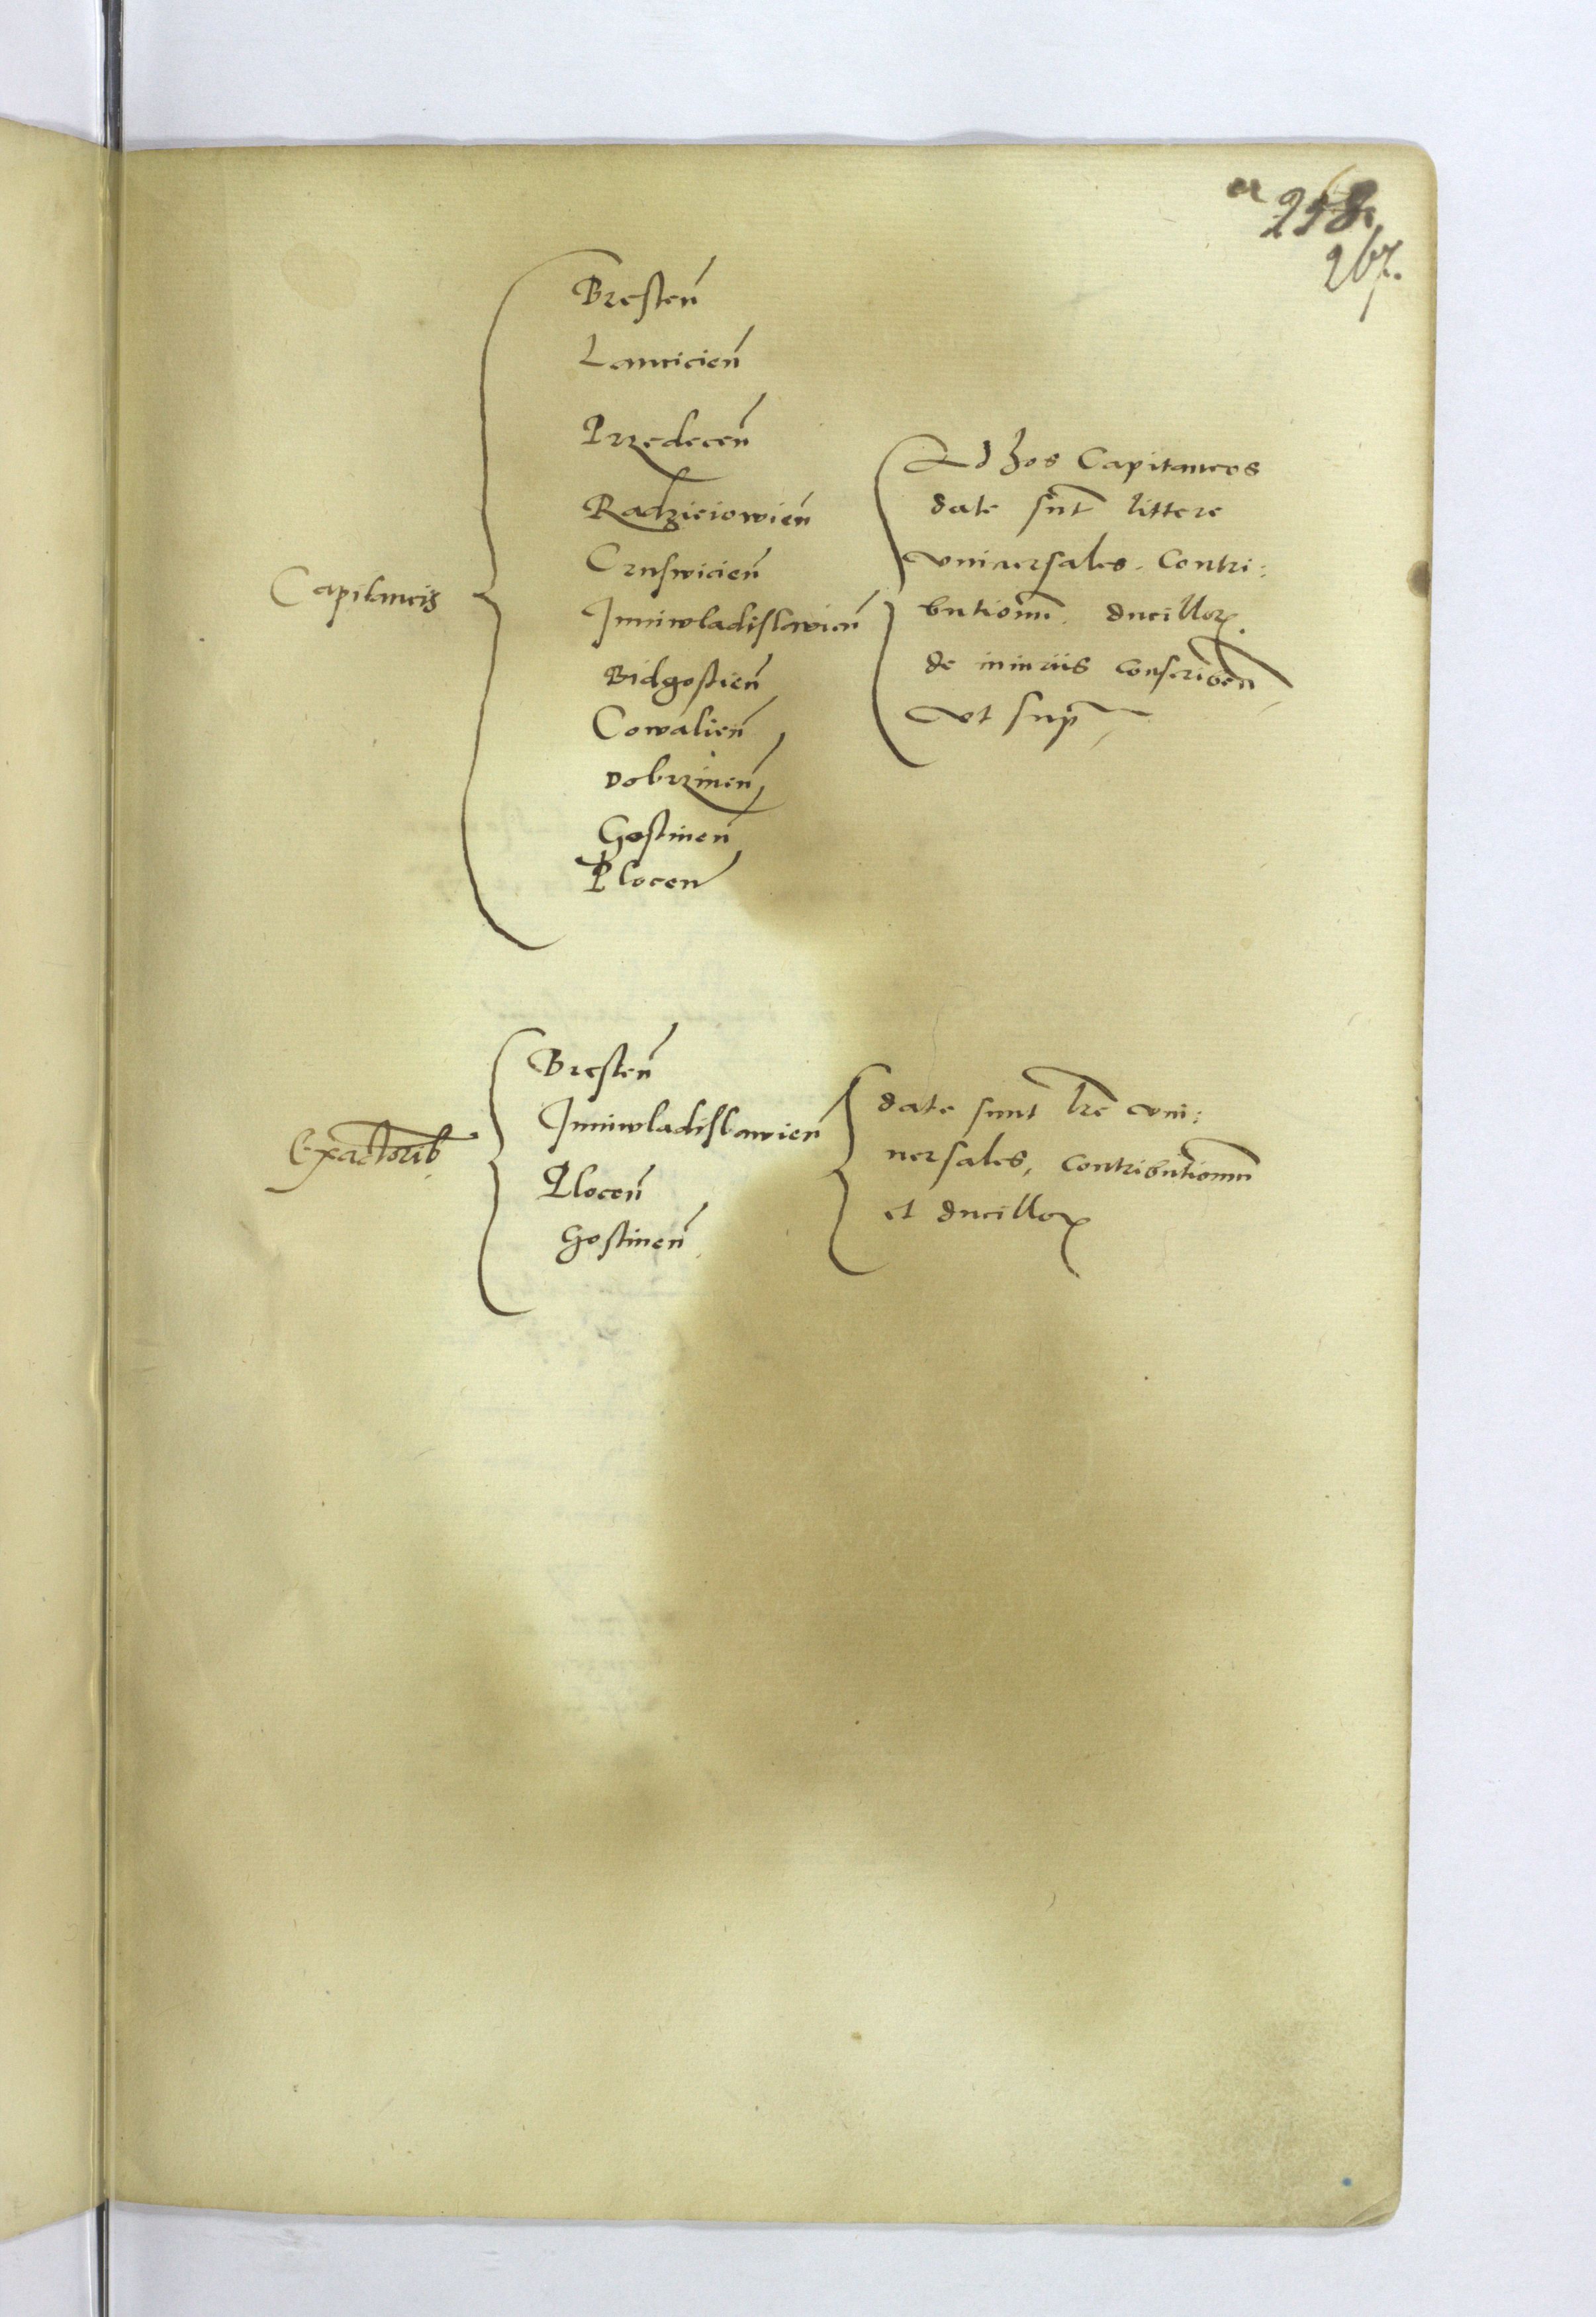 258
267.
Capitaneis
Bresten̄
Lancicien̄
Przedecen̄
Radzieiowien̄
Cruswicien̄
Juniwladislavien̄
Bidgostien̄
Cowalien̄
Dobrzinen̄
Gostinen̄
Plocen̄
Ad hos Capitaneos
date sūt littere
vniuersales. Contri:
butionū. ducilloꝝ.
de iniuriis conscriben̄
vt sup̄
Exactorib
Bresten̄
Juniwladislavien̄
Plocen̄
Gostinen̄
date sunt lr̄e vni:
uersales, contributionū
et ducilloꝝ